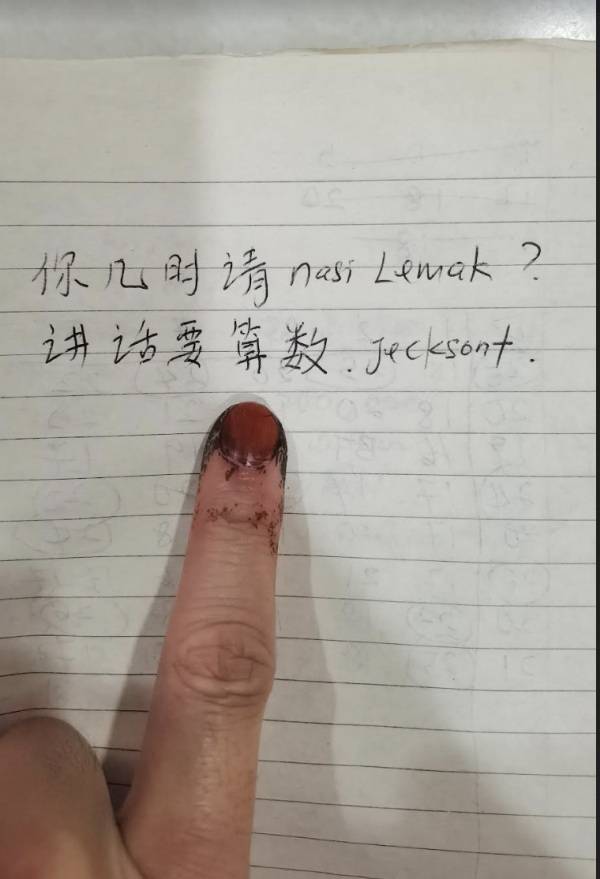 你几时请 nasi Lemak ?
讲话要算数. jecksont.